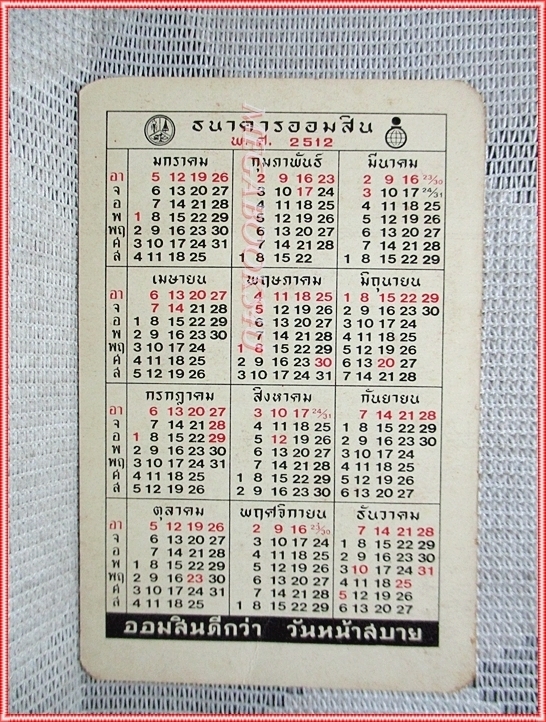 ธนาคารออมสิน
พ.ศ. 2512
มกราคม กุมภาพันธ์ มีนาคม
อา 5 12 19 26 2 9 16 23 2 9 16 23/30
จ 6 13 20 27 3 10 17 24 3 10 17 24/31
อ 7 14 21 28 4 11 18 25 4 11 18 25
พ 1 8 15 22 29 5 12 19 26 5 12 19 26
พฤ 2 9 16 23 30 6 13 20 27 6 13 20 27
ศ 3 10 17 24 31 7 14 21 28 7 14 21 28
ส 4 11 18 25 1 8 15 22 1 8 15 22 29
เมษายน พฤษภาคม มิถุนายน
อา 6 13 20 27 4 11 18 25 1 8 15 22 29
จ 7 14 21 28 5 12 19 26 2 9 16 23 30
อ 1 8 15 22 29 6 13 20 27 3 10 17 24
พ 2 9 16 23 30 7 14 21 28 4 11 18 25
พฤ 3 10 17 24 1 8 15 22 29 5 12 19 26
ศ 4 11 18 25 2 9 16 23 30 6 13 20 27
ส 5 12 19 26 3 10 17 24 31 7 14 21 28
กรกฎาคม สิงหาคม กันยายน
อา 6 13 20 27 3 10 17 24/31 7 14 21 28
จ 7 14 21 28 4 11 18 25 1 8 15 22 29
อ 1 8 15 22 29 5 12 19 26 2 9 16 23 30
พ 2 9 16 23 30 6 13 20 27 3 10 17 24
พฤ 3 10 17 24 31 7 14 21 28 4 11 18 25
ศ 4 11 18 25 1 8 15 22 29 5 12 19 26
ส 5 12 19 26 2 9 16 23 30 6 13 20 27
ตุลาคม พฤศจิกายน ธันวาคม
อา 5 12 19 26 2 9 16 23/30 7 14 21 28
จ 6 13 20 27 3 10 17 24 1 8 15 22 29
อ 7 14 21 28 4 11 18 25 2 9 16 23 30
พ 1 8 15 22 29 5 12 19 26 3 10 17 24 31
พฤ 2 9 16 23 30 6 13 20 27 4 11 18 25
ศ 3 10 17 24 31 7 14 21 28 5 12 19 26
ส 4 11 18 25 1 8 15 22 29 6 13 20 27
ออมสินดีกว่า วันหน้าสบาย
MEGABOOKS4U